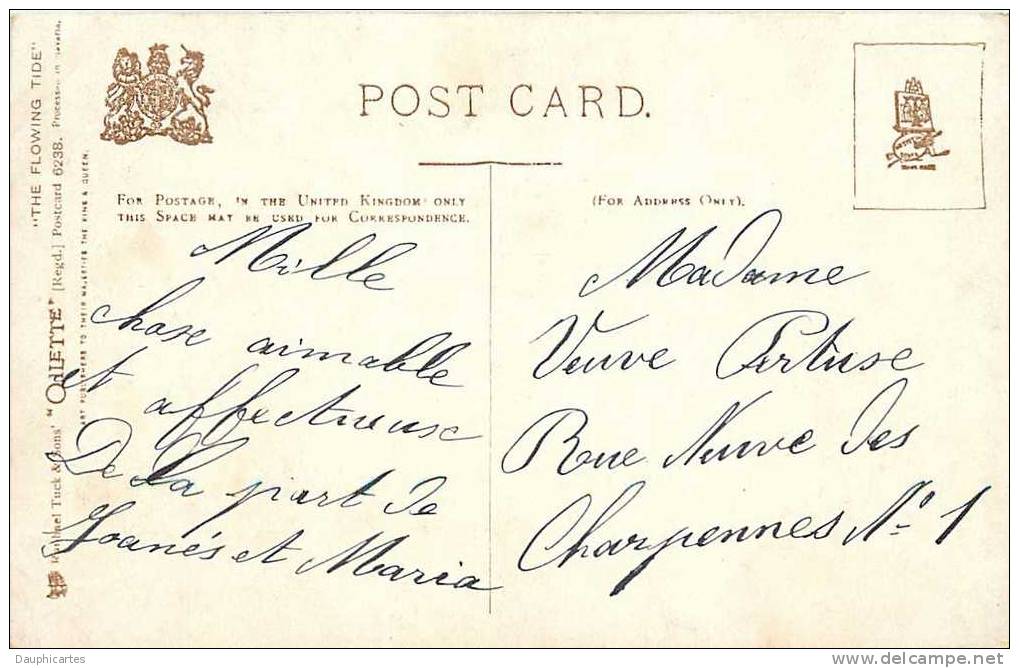 "THE FLOWING TIDE"
[Regd.] Postcard 6238. Processed in Bavaria.
Raphael Tuck & Sons' "OILETTE"
ART PUBLISHERS TO THEIR MAJESTIES THE KING & QUEEN.
POST CARD.
FOR POSTAGE, IN THE UNITED KINGDOM ONLY
THIS SPACE MAY BE USED FOR CORRESPONDENCE.
(FOR ADDRESS ONLY).
Mille
chose aimable
et affectueuse
De la part de
Joanés et Maria
Madame
Veuve Pertuse
Rue Neuve des
Charpennes No 1
Dauphicartes
www.delcampe.net